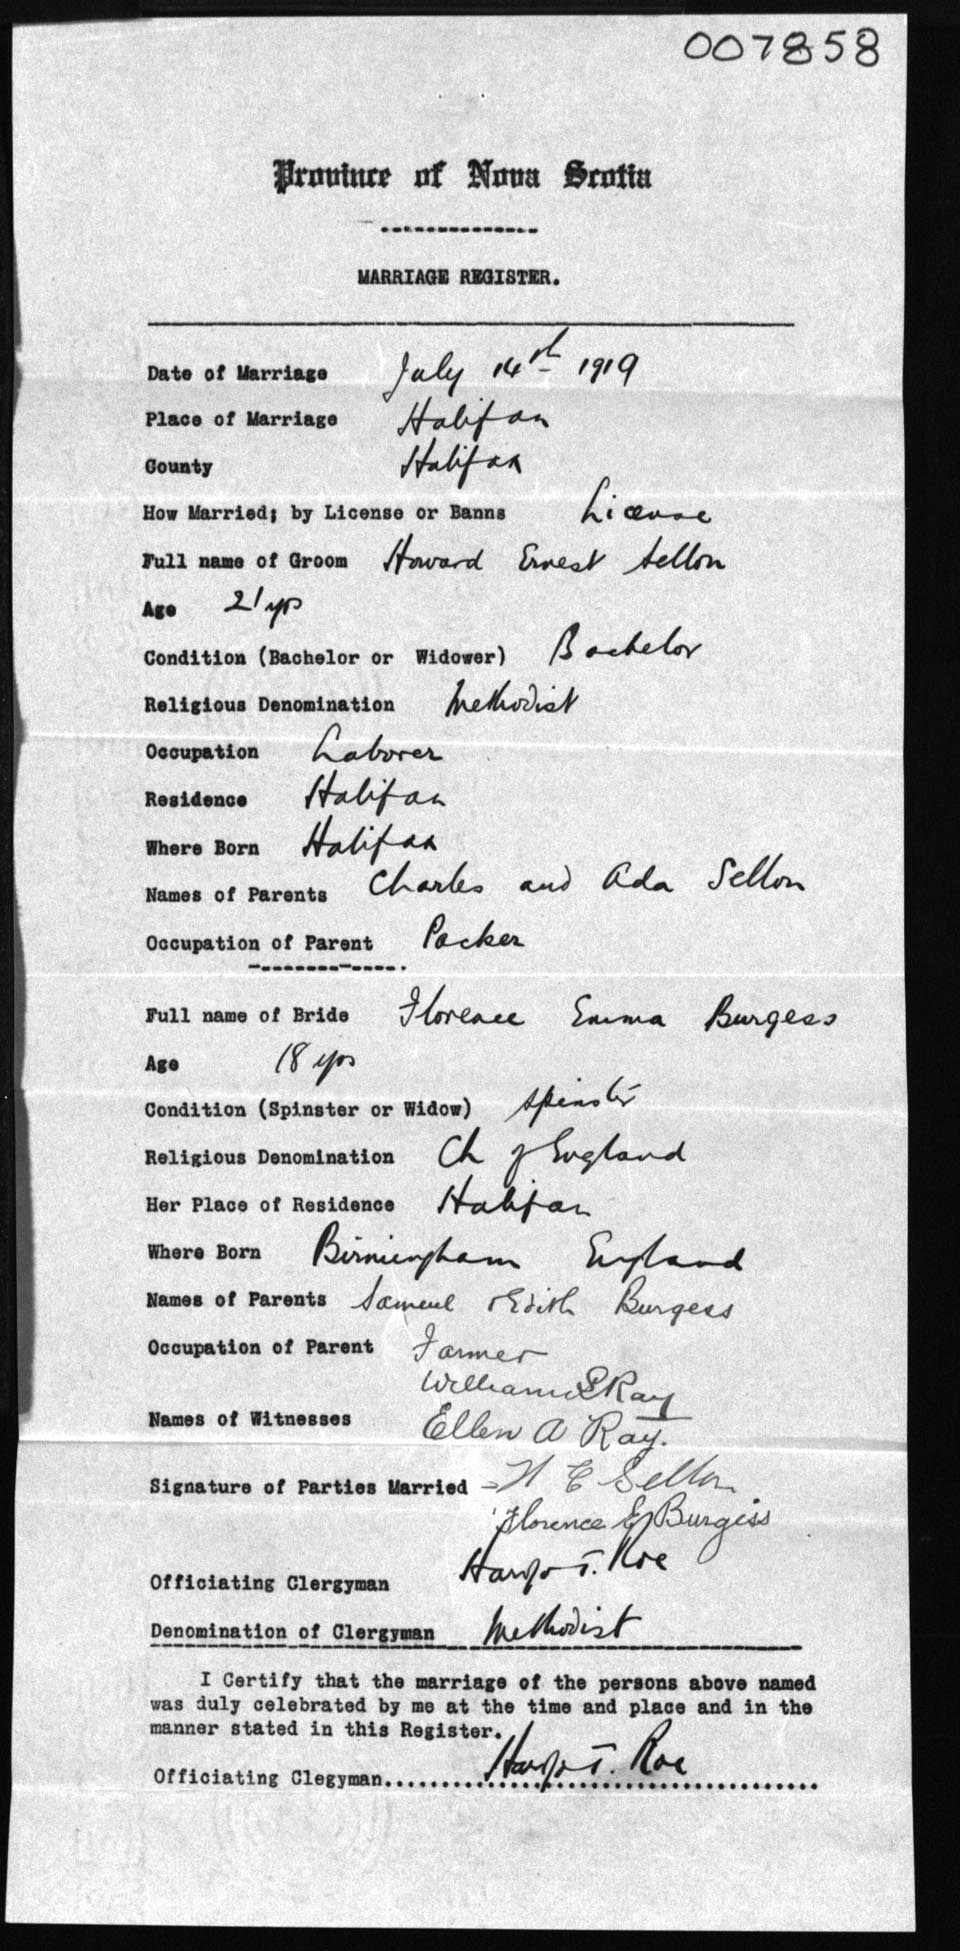 007858
Province of Nova Scotia
MARRIAGE REGISTER.
Date of Marriage July 14th 1919
Place of Marriage Halifax
County Halifax
How Married; by License or Banns License
Full name of Groom Howard Ernest Sellon
Age 21 yrs
Condition (Bachelor or Widower) Bachelor
Religious Denomination Methodist
Occupation Laborer
Residence Halifax
Where Born Halifax
Names of Parents Charles and Ada Sellon
Occupation of Parent Packer
Full name of Bride Florence Emma Burgess
Age 18 yrs
Condition (Spinster or Widow) Spinster
Religious Denomination Ch of England
Her Place of Residence Halifax
Where Born Birmingham England
Names of Parents Samuel & Edith Burgess
Occupation of Parent Farmer
William Ray
Names of Witnesses Ellen A Ray.
Signature of Parties Married H E Sellon
Florence E Burgess
Officiating Clergyman T. Roe
Denomination of Clergyman Methodist
I Certify that the marriage of the persons above named
was duly celebrated by me at the time and place and in the
manner stated in this Register.
Officiating Clegyman.......... T. Roe